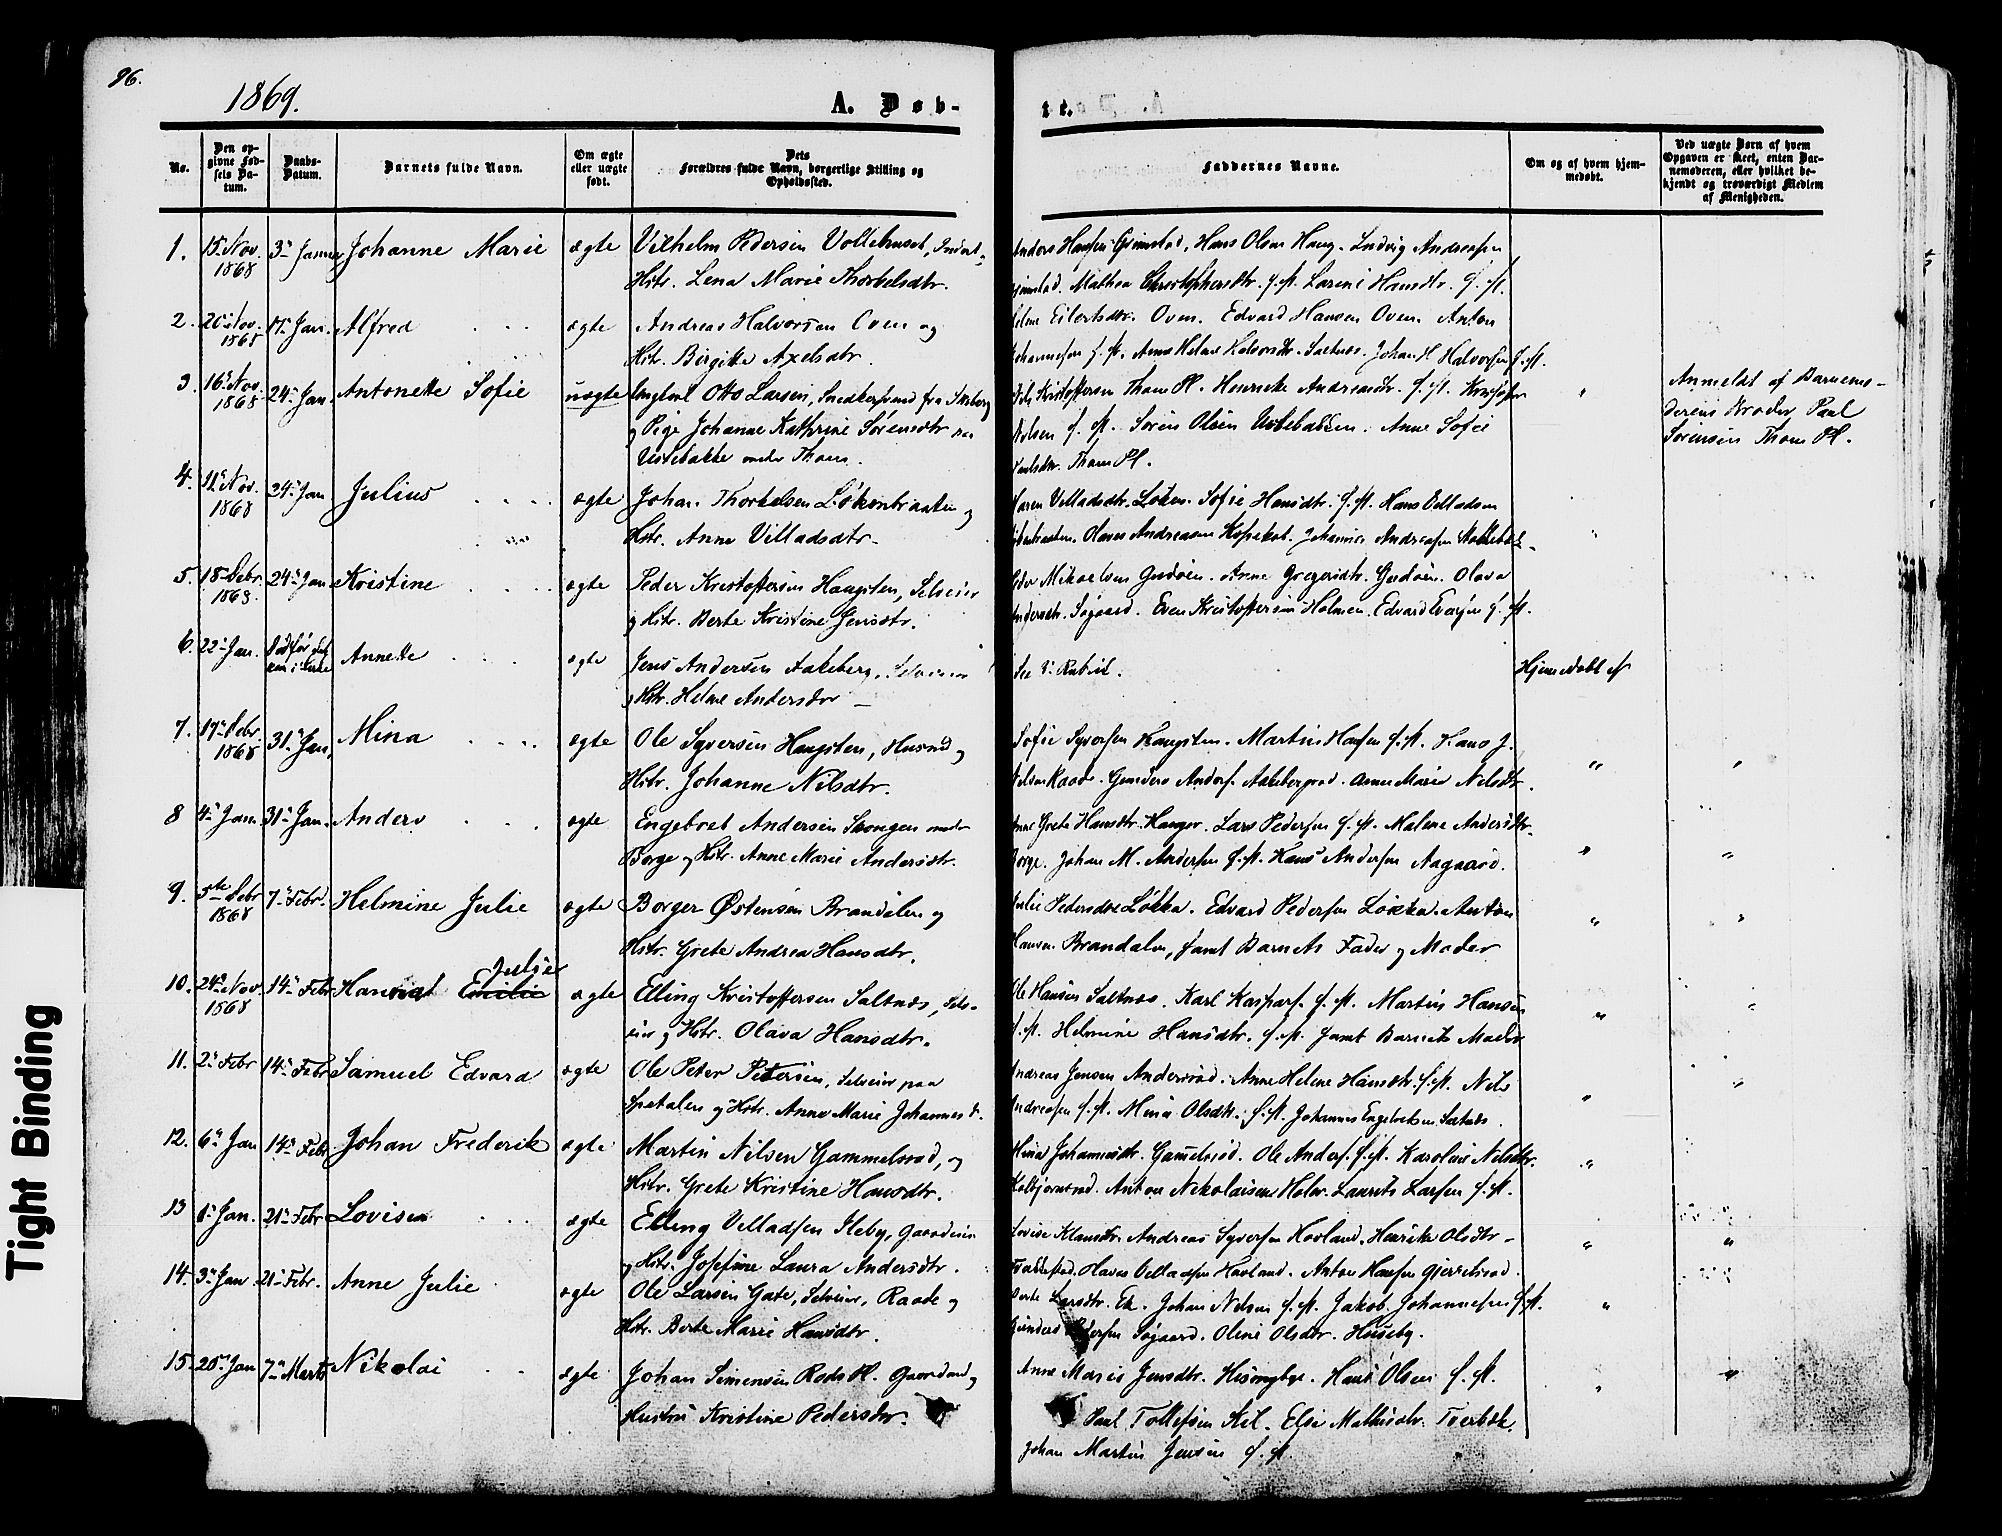 96.
1869.
A. Døb-
te.
No.
Den op-
givne Fød-
sels Da-
tum.
Daabs-
Datum.
Barnets fulde Navn.
Om ægte
eller uægte
født.
Dets
Forældres fulde Navn, borgerlige Stilling og
Opholdssted.
Faddernes Navne.
Om og af hvem hjem-
medøbt.
Ved uægte Børn af hvem
Opgaven er skeet, enten Bar-
nemoderen, eller hvilket be-
kjendt og troværdigt Medlem
af Menigheden.
1. 15 Nov. 1868 3 Januar Johanne Marie ægte Vilhelm Pedersen Vollehuset,
Hstr. Lena Marie Thorkelsdtr.
Anders Hansen Grimstad, Hans Olsen Haug. Ludvig Andreasen
Grimstad. Mathea Christophersdtr. s. st. Larine Hansdtr. s. st.
2. Nov. 1868 17 Jan. Alfred ægte Andreas Halvorsen Oven og
Hstr. Birgitte Axelsdtr.
Helene Eilertsdtr. Oven. Edvard Hansen Oven. Anton
Johannesen s. st. Anne Helene Saltnes. Johan H Halvorsen s. st.
3. 16 Nov. 1868 24 Jan. Antonette Sofie uægte Ungkarl Otto Larsen, Snedkersvend fra
og Pige Johanne Kathrine Sørensdtr paa
Ustebakke under Thom.
Kristoffersen Thom Pl. Henrikke Andreasdtr. s. st. Kristoffer
s. st. Søren Olsen Ustebakken. Anne Sofie
Paulsdtr. Thom Pl.
"
Anmeldt af Barnemo-
derens Broder Paul
Sørensen Thom Pl.
4. 11 Nov. 1868 24 Jan Julius ægte Johan Thorkelsen Løkenbraaten og
Hstr. Anne Villadsdtr.
Maren Villadsdtr. Løken. Sofie Hansdtr. s. st. Hans Villadsen
Olaves Andreasen Kopskot. Johannes Andreasen
"
5. 18 Debr. 1868. 24 Jan Kristine ægte Peder Kristoffersen Haugsten, Selveier
og Hstr. Berte Kristine Jensdtr.
Peder Mikaelsen Gudøen. Anne Gregersdtr. Gudøen. Olava
Andersdtr. Søgaard. Even Kristoffersen Holmen. Edvard s. st.
6. 22 Jan. Annette ægte Jens Andersen Aakeberg, Selveier
og Hstr. Helene Andersdtr
See v. Rubrik.
Hjemmedøbt af
7. 17 Debr 1868 31 Jan. Mina ægte Ole Syversen Haugsten, Husmd og
Hstr. Johanne Nilsdtr.
Sofie Syversen Haugsten. Martin Hansen s. st. Hans J.
Nilsen Raade. Gunders Anders. Aakebergrød. Anne Marie Nilsdtr.
" "
8 4 Jan. 31 Jan. Anders ægte Engebret Andersen Skougen under
Borge og Hstr. Anne Marie Andersdtr.
Anne Grete Hansdtr. Hauger. Lars Pedersen s. st. Malene Andersdtr.
Borge. Johan M. Andersen s. st. Hans Andersen Aagaard.
" "
9. 5te Debr 1868 7 Febr. Helmine Julie ægte Borger Østensen Brandalen og
Hstr. Grete Andrea Hansdtr.
Julie Pedersdtr Løkka. Edvard Pedersen Løkka. Anton
Hansen Brandalen, samt Barnets Fader og Moder
" "
Julie
10. 24 Nov. 1868 14 Febr Emilie ægte Elling Kristoffersen Saltnes, Sel-
eier og Hstr. Olava Hansdtr.
Ole Hansen Saltnes. Karl Kaspars. s. st. Martin Hansen
s. st. Helmine Hansdtr. s. st. samt Barnets Moder
" "
11. 2 Febr 14 Febr Samuel Edvard ægte Ole Peter Petersen, Selveier paa
Spetalen og Hstr. Anne Marie Johannesd.
Andreas Jensen Andersrød. Anne Helene Hansdtr. s. st. Nils
Andreasen s. st. Mina Olsdtr. s. st. Johannes Engebretsen Saltnes.
" "
12. 6 Jan 14 Febr Johan Frederik ægte Martin Nilsen Gammelsrød, og
Hstr. Grete Kristine Hansdtr.
Mina Johannesdtr. Gamelsrød. Ole Anders. s. st. Karoline Nilsdtr.
Kolbjørnsrød. Anton Nikolaisen Holm. Laurits Larsen s. st.
"
13 1 Jan. 21 Febr Lovisa ægte Elling Villadsen Ileby, Gaardeier
og Hstr. Josefine Laura Andersdtr.
Lovise Klausdtr. Andreas Syversen Hovland. Henrikke Olsdtr
Villadsen Hovland. Anton Hansen
" "
14. 3 Jan 21 Febr. Anne Julie ægte Ole Larsen Gate, Selveier, Raade og
Hstr. Berte Marie Hansdtr.
Berte Larsdtr. Ek. Johan Nilsen s. st. Jakob Johannesen s. st.
Søgaard. Oline Olsdtr. Huseby.
"
15. 25 Jan 7 Marts Nikolai ægte Johan Simensen Røds Pl. Gaardmd og
Hustru Kristine Pedersdtr.
Anne Marie Jensdtr. Hans Olsen s. st.
Paul Tollefsen Kil. Else Mathisdtr. Tverbæk.
Johan Martin Jensen s. st.
" "
Tight Binding